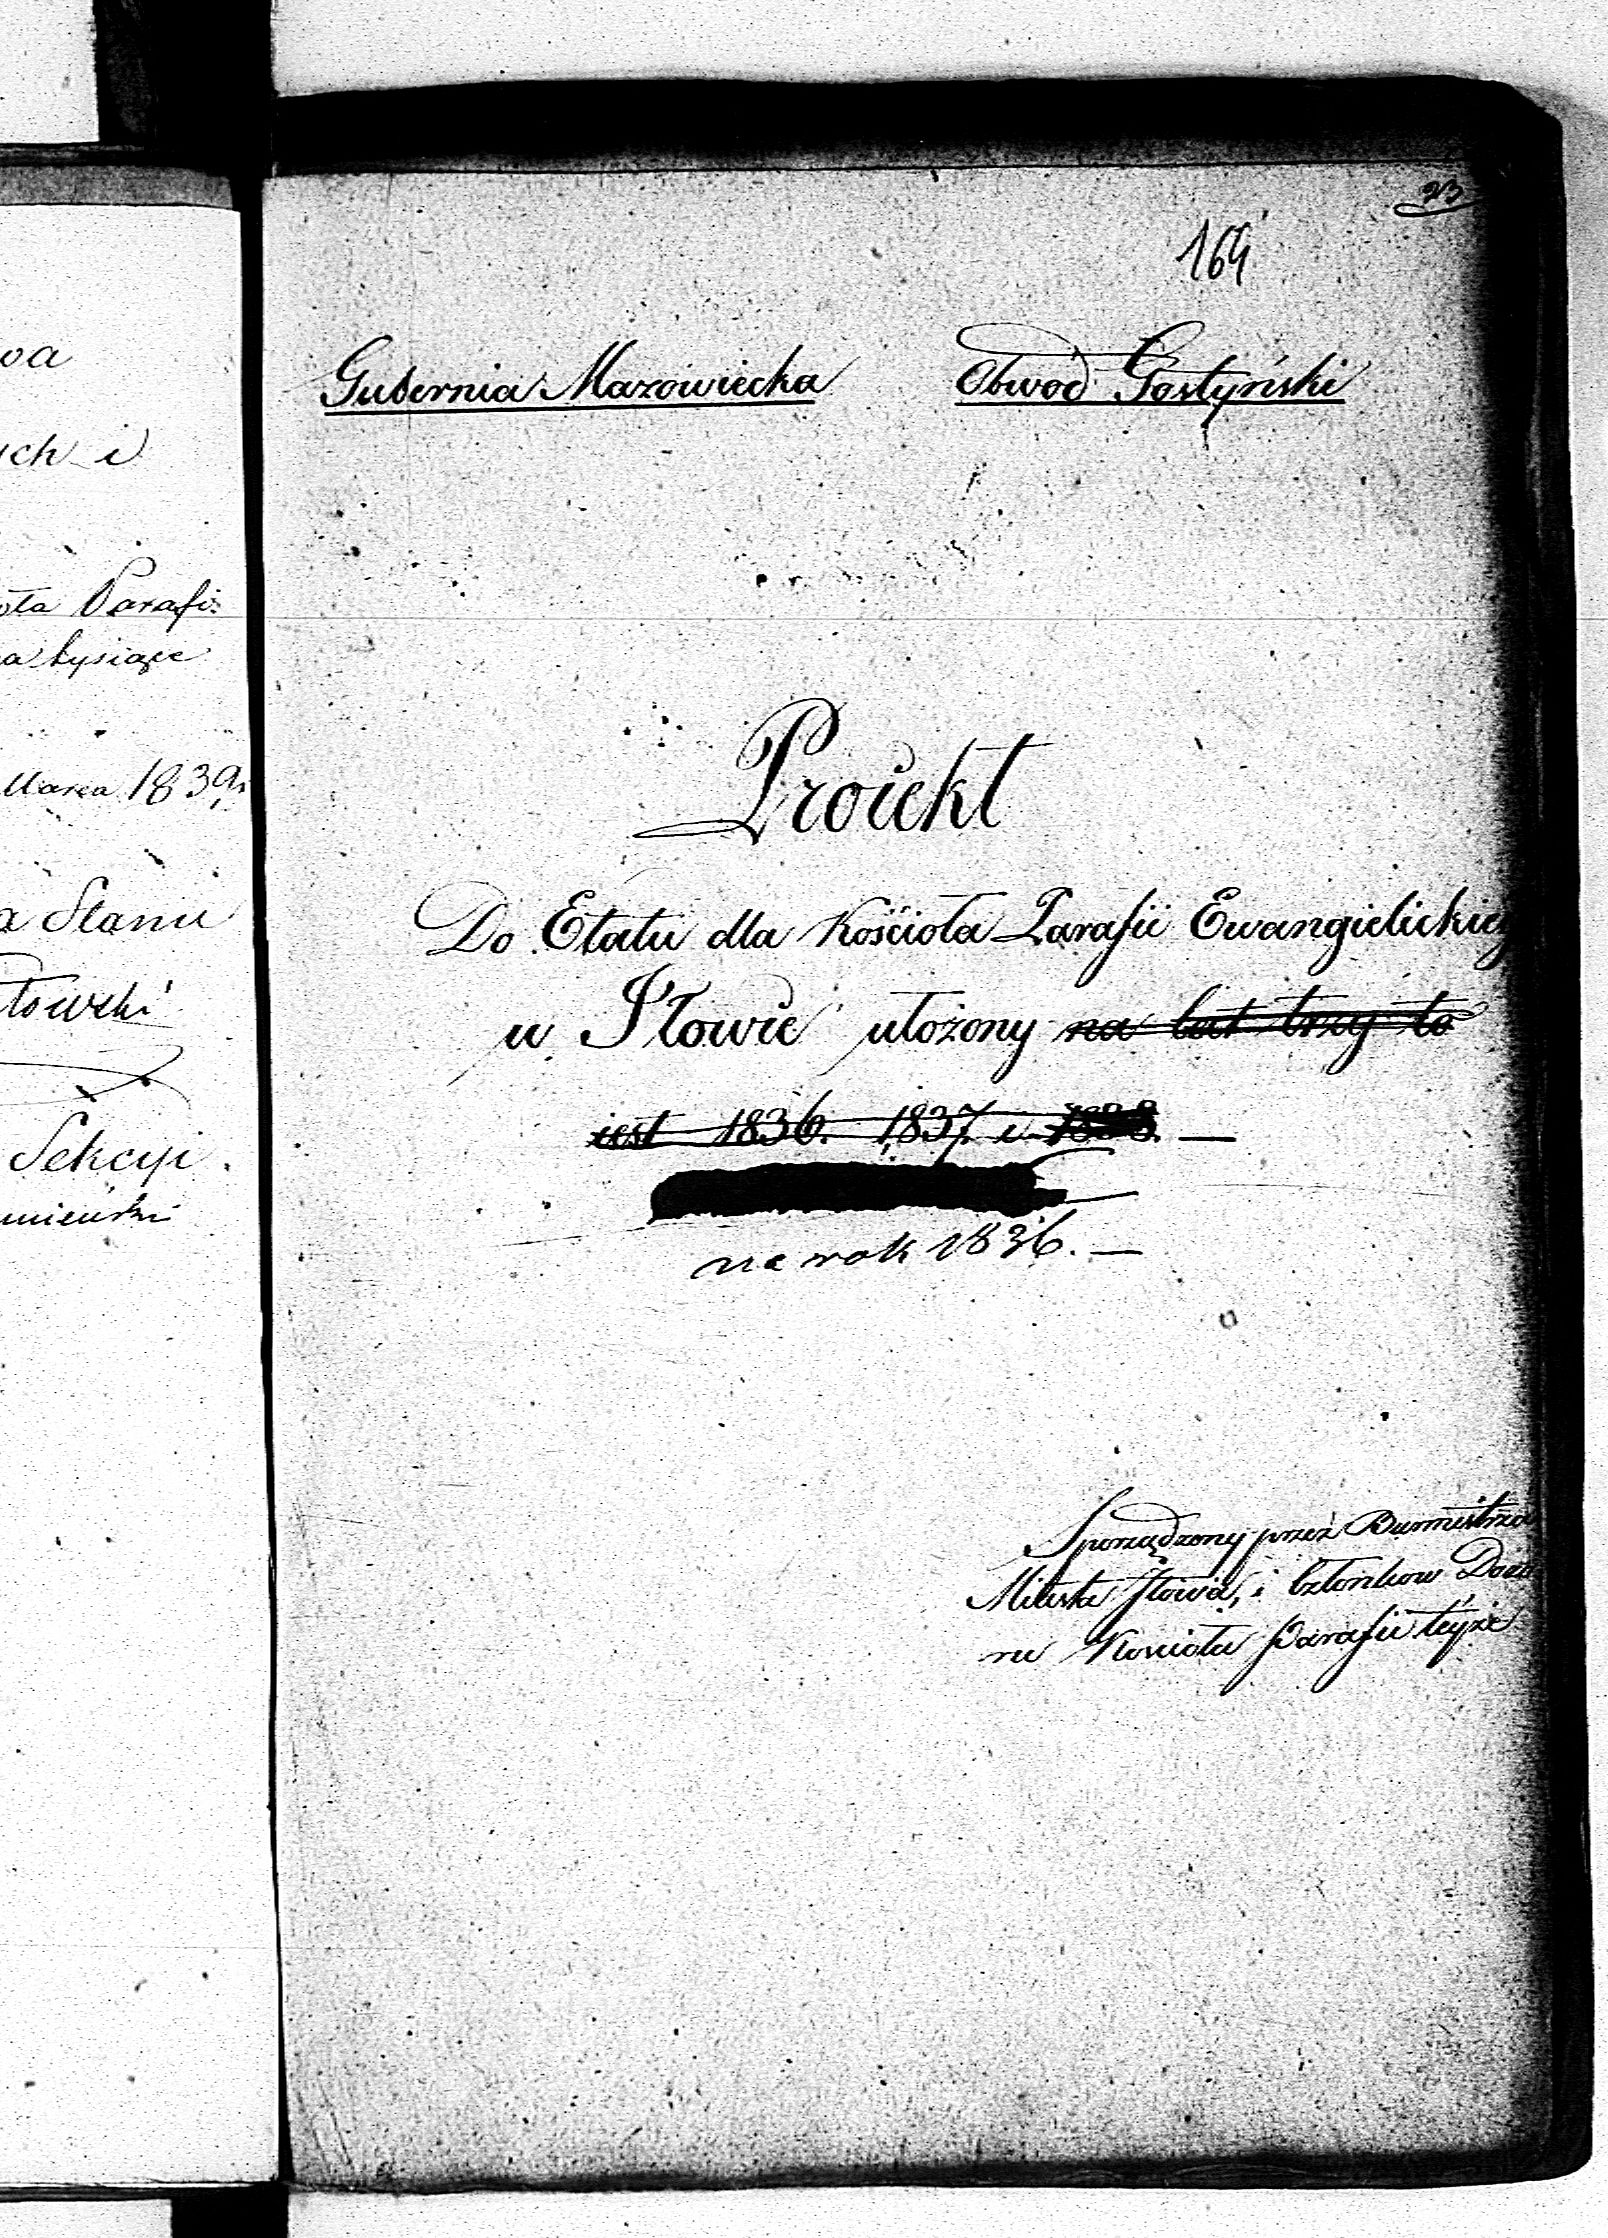 wa
ych i
oła Parafi:
na tysiące
Marca 1839 r.
a Stanu
towski
Sekcyi.
mieński
23
164
Gubernia Mazowiecka Obwod Gostyński
Proiekt
Do Etatu dla Kościoła Parafii Ewangielickiey
w Iłowie ułożony na lat trzy to
iest 1836. 1837. i 1838. —
na rok 1836. —
Sporządzony przez Burmistrza
Miasta Iłowa, i Członkow Dozo
ru Kościoła Parafii teyże